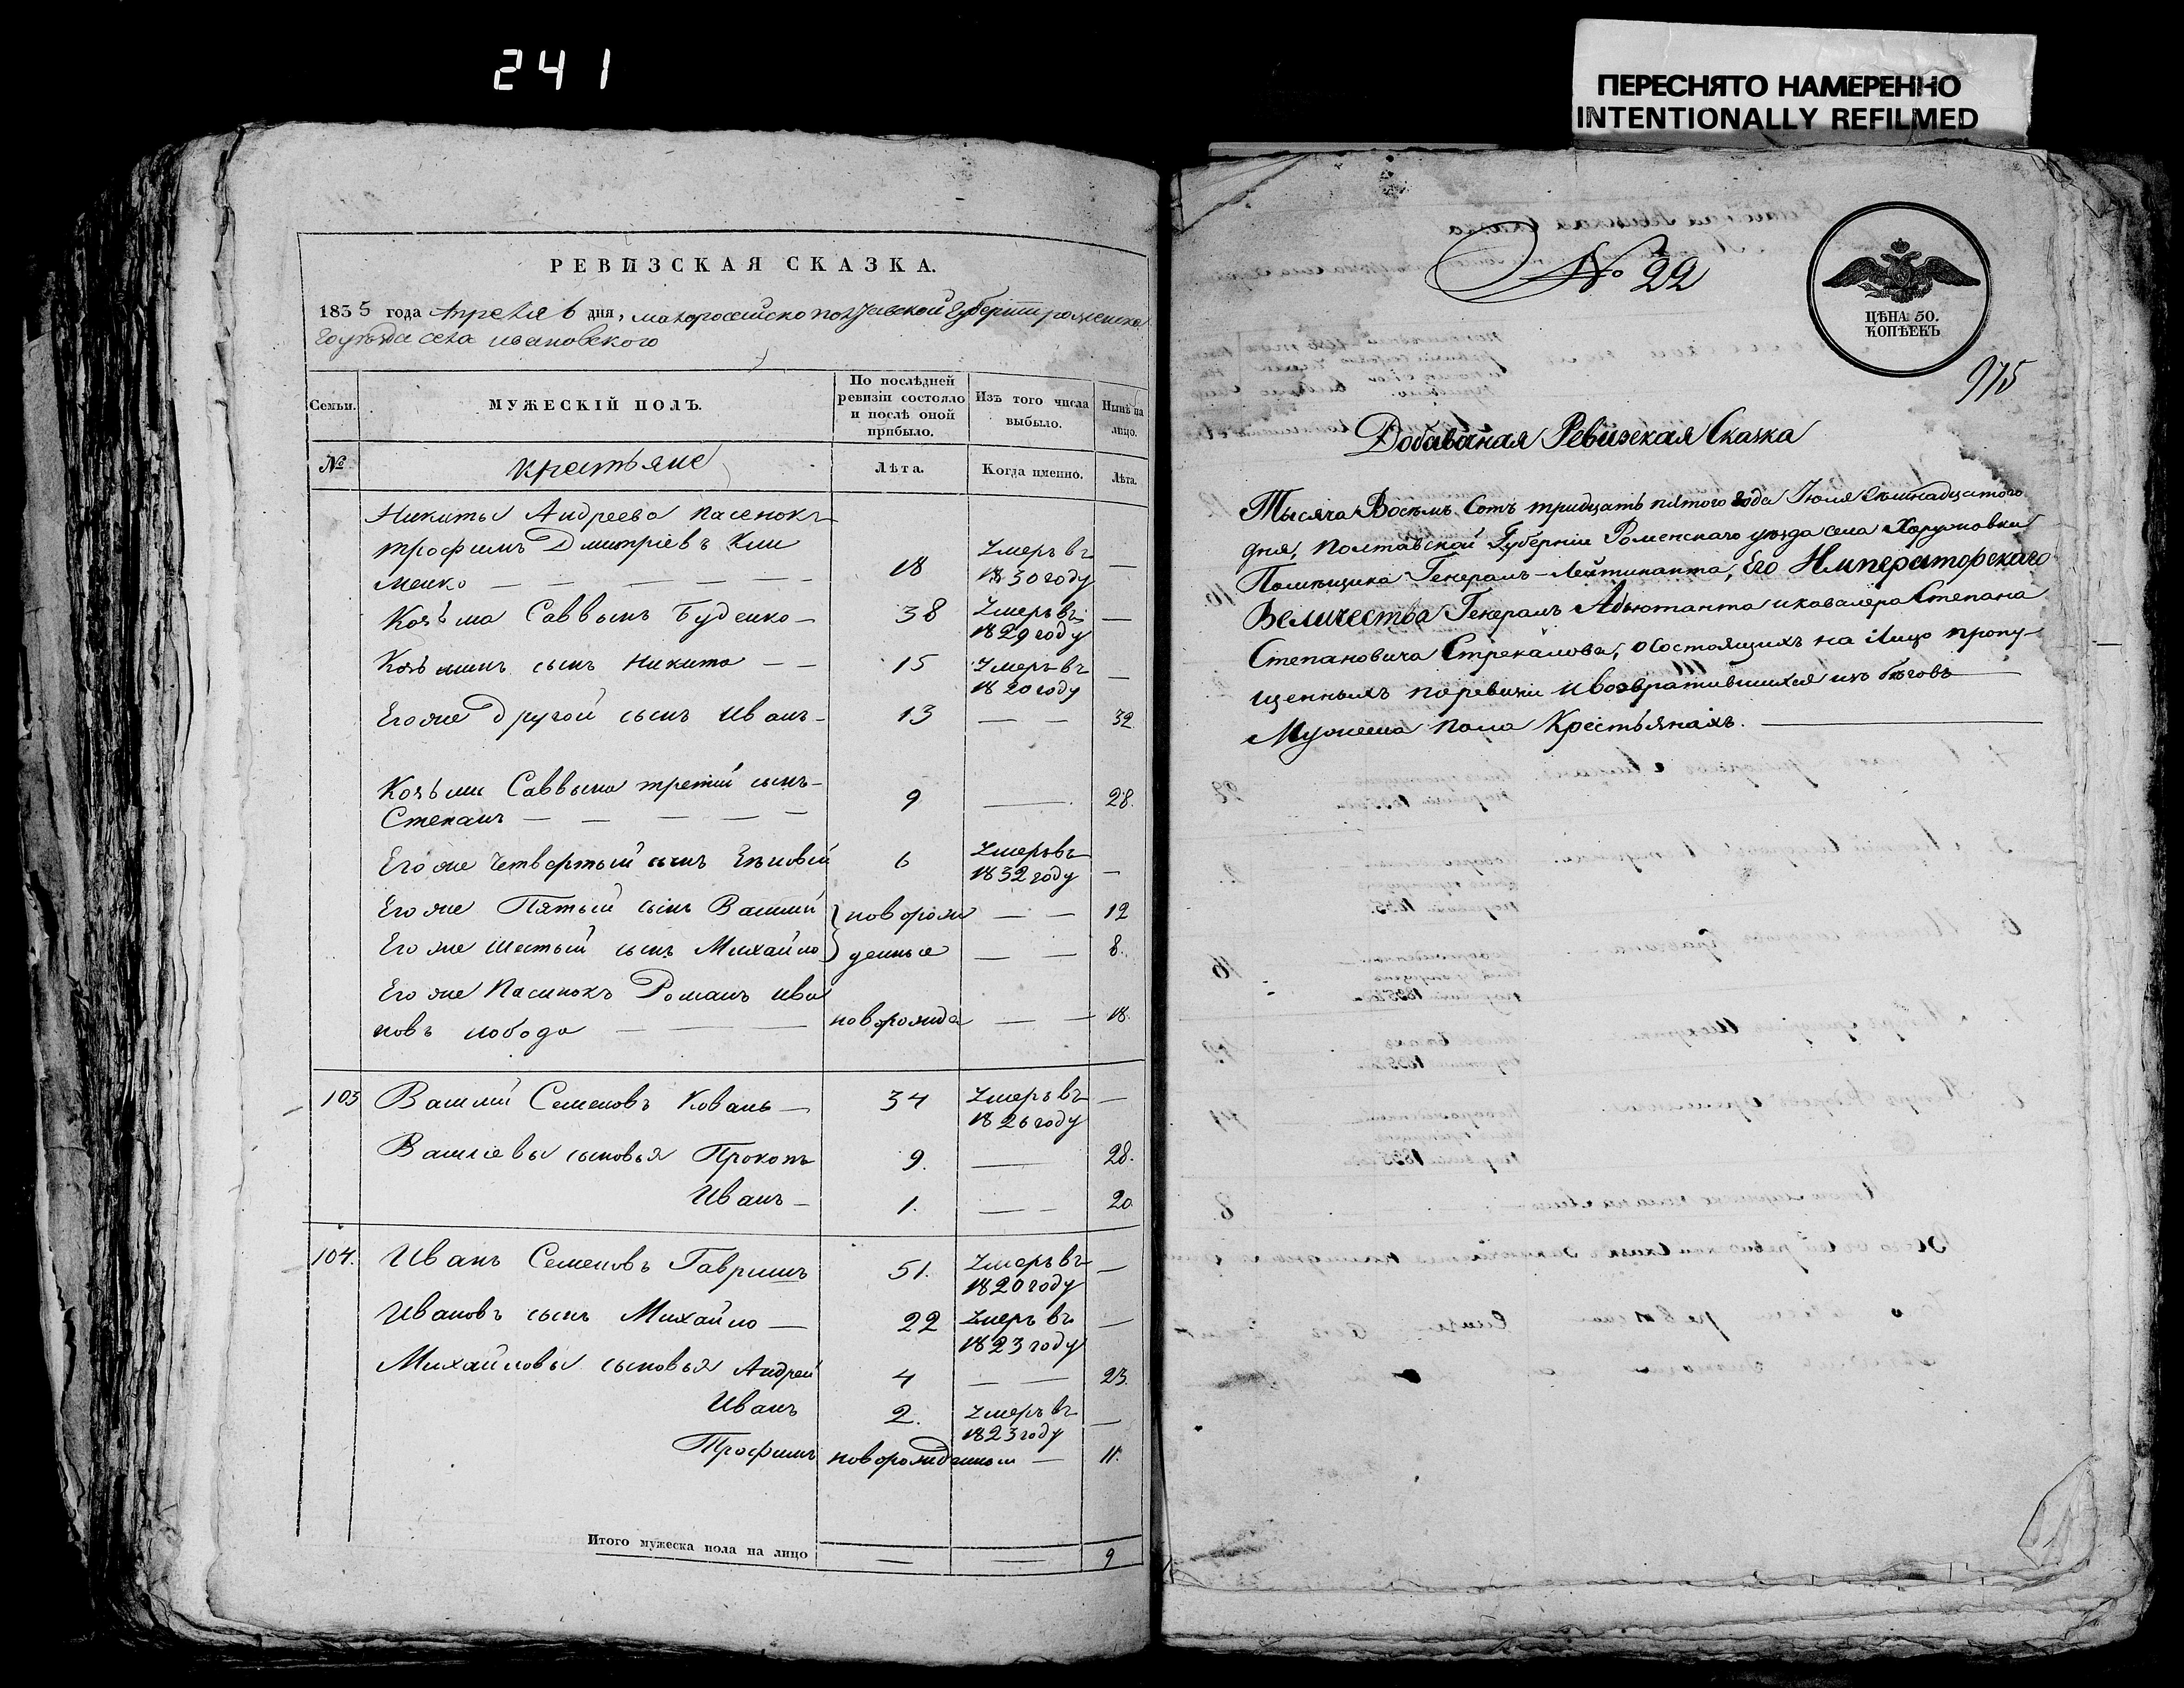 241
ПЕРЕСНЯТО НАМЕРЕННО
INTENTIONALLY REFILMED
РЕВИЗСКАЯ СКАЗКА.
1835 года Апреля 6 дня, малороссийско полтавской Губернии роменска
го уезда села ивановского
Семьи.
МУЖЕСКІЙ ПОЛЪ.
По послѣдней ревизіи состояло и послѣ оной прибыло.
Изъ того числа выбыло.
Нынѣ на лицо.
№
крестьяне
Лѣта.
Когда именно.
Лѣта.
Никиты Андреева пасенокъ
трофимъ Дмитріевъ Кли
менко — 18 Умеръ въ 1830 году —
Козьма Саввынъ Буденко — 38 Умеръ въ 1829 году —
Козьминъ сынъ Никита — — 15 Умеръ въ 1820 году —
Его же другой сынъ Иванъ — 13 — — 32
Козьмы Саввына третій сынъ —
Степанъ — 9 — 28.
Его же четвертый сынъ 6 Умеръ въ 1832 году —
Его же Пятый сынъ Василий новорож — — 12
Его же шестый сынъ Михайло денные — — 8.
Его же Пасинокъ Романъ ива
новъ лобода — новорожде — — 18.
103 Василий Семеновъ Коваль — 34 Умеръ въ 1826 году —
Василіевы сыновья Прокопъ 9. — 28.
Иванъ — 1. — — 20.
104. Иванъ Семеновъ Гавришъ 51. Умеръ въ 1820 году —
Ивановъ сынъ Михайло — 22 Умеръ въ 1823 году —
Михайловы сыновья Андрей 4 — — 23.
Иванъ 2. Умеръ въ 1823 году —
Трофимъ новорожденный — 11.
Итого мужеска пола на лицо — — 9
№ 22
ЦѢНА 50.
КОПѢЕКЪ
975
Добавачная Ревизская Сказка
Тысяча Восемь Сотъ тридцать пятого года Июля
дня, Полтавской Губерніи Роменскаго уезда села Хоружовки
Помещика Генералъ-Лейтинанта, Его Императорскаго
Величества Генералъ Адьютанта и кавалера Степана
Степановича Стрекалова, о состоящихъ на лицо пропу-
щенныхъ поревизіи и возвратившихся изъ бѣговъ
Мужеска пола Крестьянахъ.